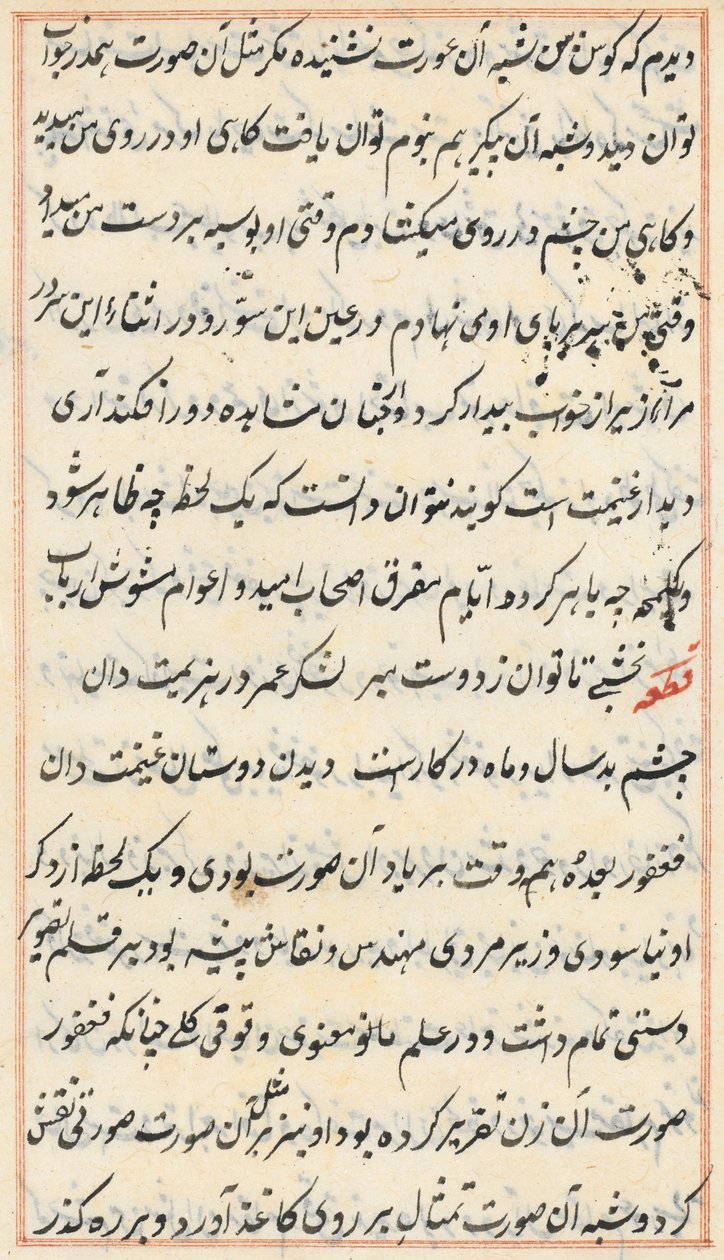 دیدم که کوس من شبه آن عورت نشنیده مکر مثل آن صورت همدر خواب
توان دید و شبه آن پیکر هم بنوم توان یافت کاهی او در روی من میدید
و کاهی من چشم در روی میکشادم وقتی او بوسه بر دست من میداد
وقتی من سر بر پای او می نهادم در عین این سوّر و در اثناء این سرور
مرا آن وزیر از خواب بیدار کرد و از چنان مشاهده دور افکند آری
دیدار غنیمت است کویند نتوان دانست که یک لحظه چه ظاهر شود
و یکلمحه چه باهر کردد ایّام مفرق اصحاب امید و اعوام مشوش ارباب
قطعه نخشبے تا توان ز دوست مبر لشکر عمر در هزیمت دان
چشم بد سال و ماه در کارست دیدن دوستان غنیمت دان
فغفور بعدهٔ همه وقت بر یاد آن صورت بودی و یک لحظه از ذکر
او نیاسودی وزیر مردی مهندس و نقاش پیشه بود بر قلم تصویر
دستی تمام داشت و در علم مانوی وقوفی کلے چنانکه فغفور
صورت آن زن تقریر کرده بود او نیز بر مثل آن صورت صورتی نقش
کرد و شبه آن صورت تمثال بر روی کاغذ آورد و بر ره کذر